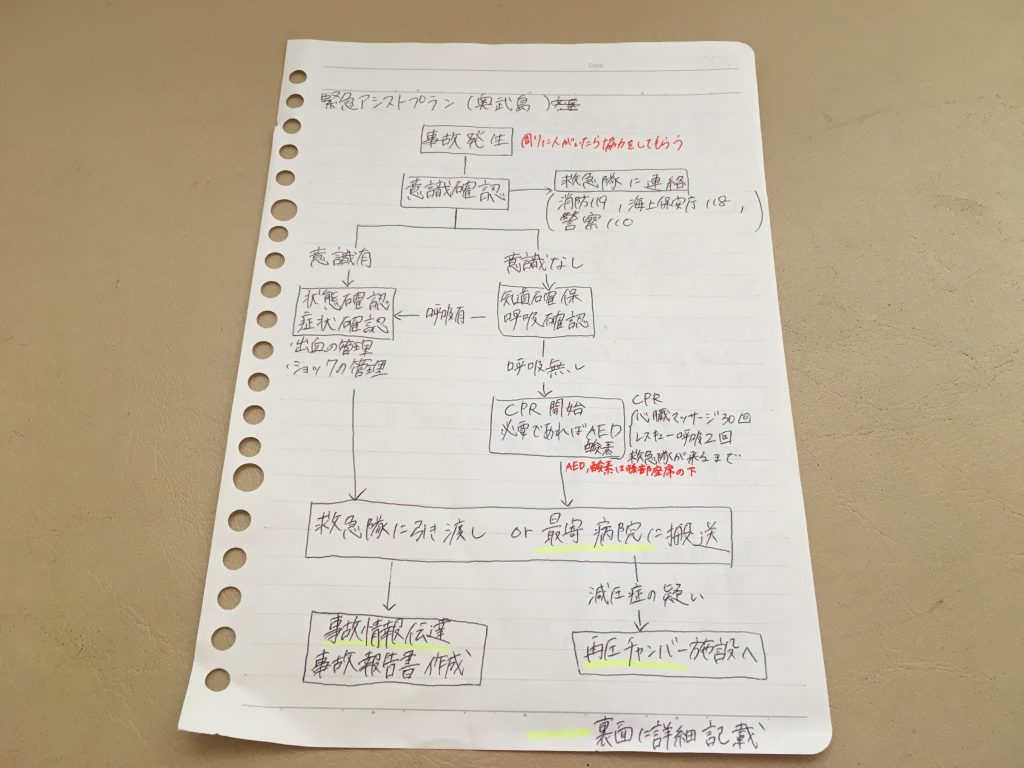 Date
緊急アシストプラン (奥武島 )
事故発生
周りに人がいたら協力をしてもらう
意識確認
救急隊に連絡
(消防119, 海上保安庁118,
警察110)
意識有
意識なし
状態確認
症状確認
呼吸有
気道確保
呼吸確認
・出血の管理
・ショックの管理
呼吸無し
CPR開始
必要であればAED
酸素
CPR
心臓マッサージ30回
レスキュー呼吸2回
救急隊が来るまで
AED,酸素は後部座席の下
救急隊に引き渡し or 最寄病院に搬送
減圧症の疑い
事故情報伝達
事故報告書作成
再圧チャンバー施設へ
裏面に詳細記載